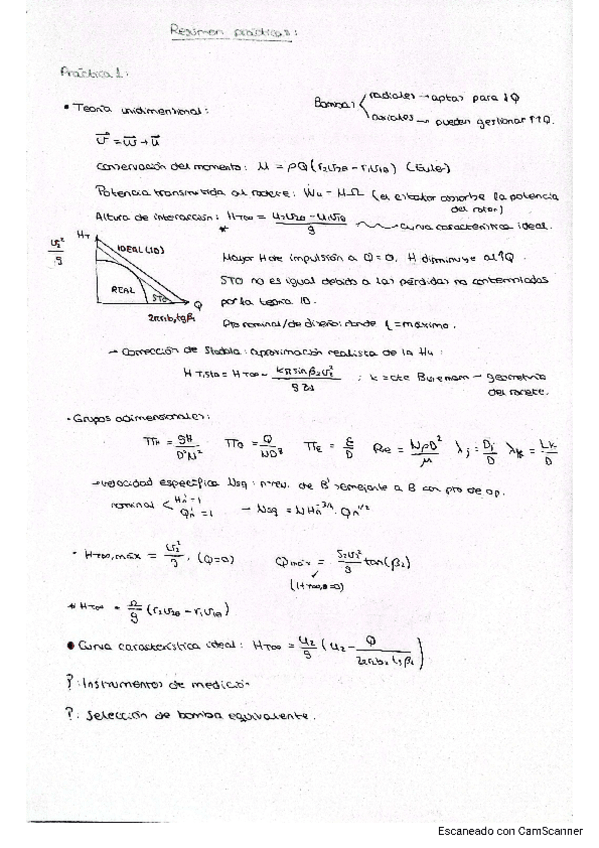 Resumen prácticas:
Práctica 1:
• Teoría unidimensional:
Bombas < radiales → aptas para ↓Q
axiales → pueden gestionar ↑↑Q.
v⃗ = w⃗ + u⃗
Conservación del momento: M = ρQ(r₂v₂θ - r₁v₁θ) (Euler)
Potencia transmitida al rodete: Wu = M·Ω (el estator absorbe la potencia
del rotor)
Altura de interacción: HT∞ = (u₂v₂θ - u₁v₁θ)/g → Curva característica ideal.
*
HT
IDEAL (1D)
REAL
STO
Q
Mayor H de impulsión a Q=0. H disminuye al ↑Q.
STO no es igual debido a las pérdidas no contempladas
por la teoría 1D.
Pto nominal/de diseño: donde = máximo.
→ Corrección de Stodola: aproximación realista de la Hu:
; k = cte Busemann → geometría
del rodete.
• Grupos adimensionales:
ΠH = gH/D²N² ΠQ = Q/ND³ ΠE = ε/D Re = NρD²/μ λj = Dj/D λk = Lk/D
→ velocidad específica Nsq: nºrev. de B' semejante a B con pto de op.
nominal < Hn' = 1
Qn' = 1 → Nsq =
• HT∞,máx = (Q=0) Qmáx = tan(β₂)
* HT∞ = Ω/g (r₂v₂θ - r₁v₁θ)
• Curva característica ideal: HT∞ = u₂/g (u₂ -
? : Instrumentos de medición
? : Selección de bomba equivalente.
Escaneado con CamScanner